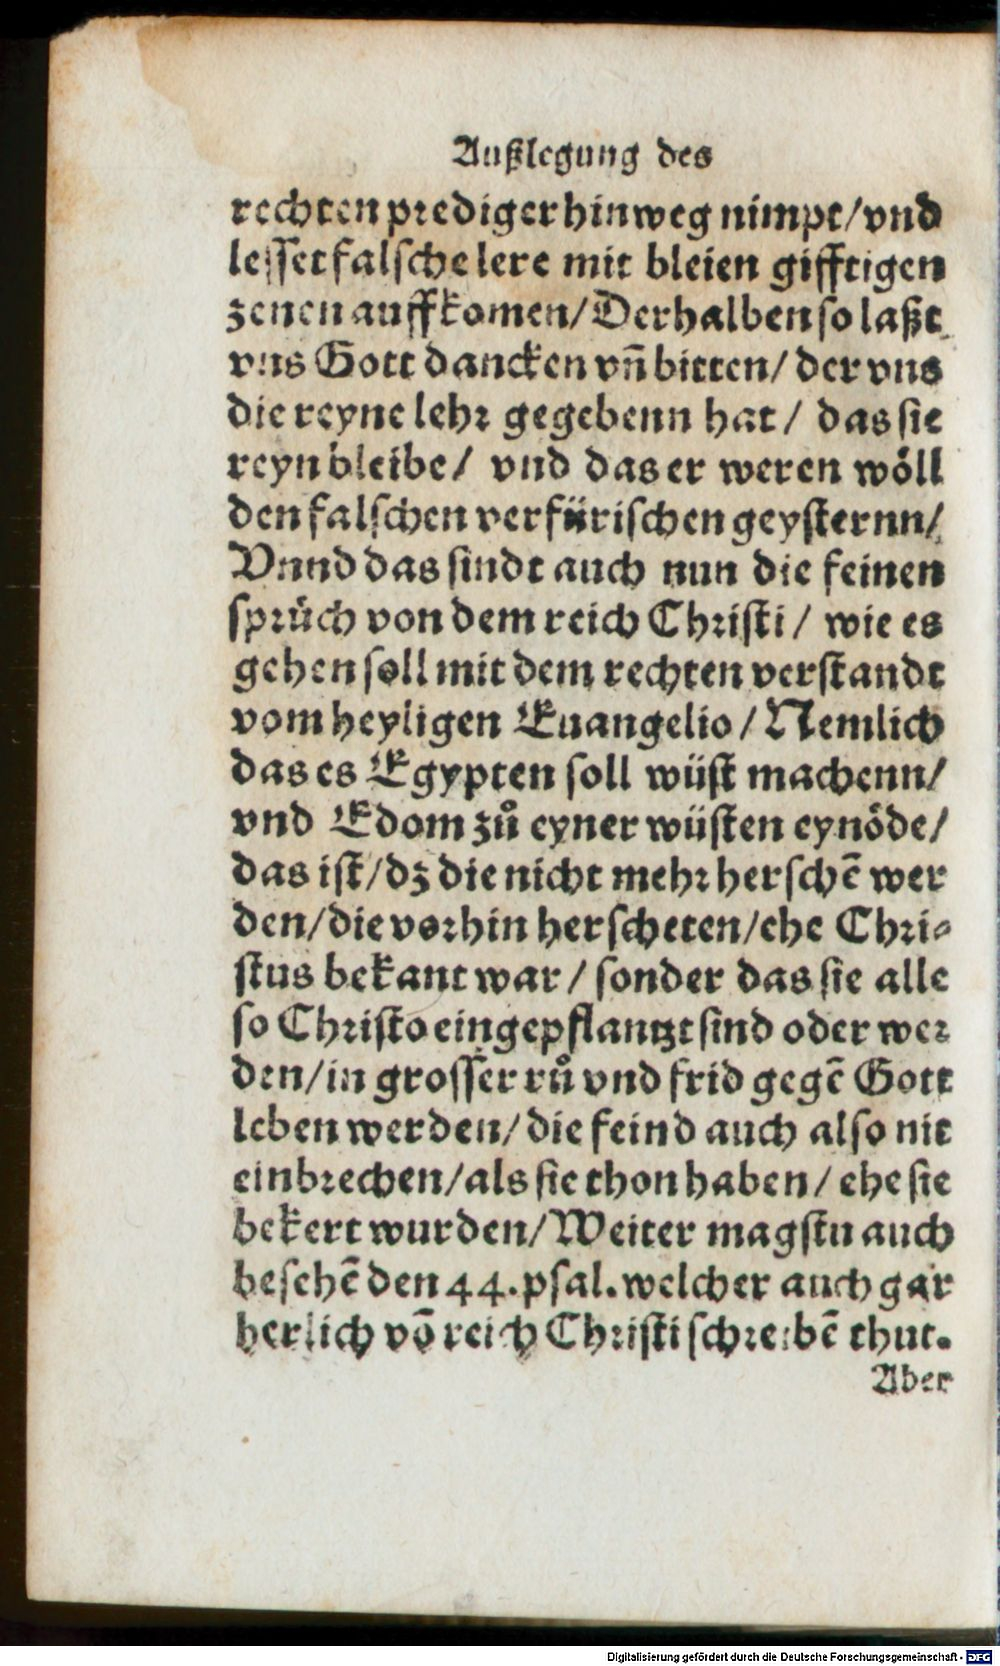 Außlegung des
rechten prediger hinweg nimpt/ vnd
lesset falsche lere mit bleien gifftigen
zenen auffkomen/ Derhalben so laßt
vns Gott dancken vn̄ bitten/ der vns
die reyne lehr gegebenn hat/ das sie
reyn bleibe/ vnd das er weren wöll
den falschen verfürischen geysternn/
Vnnd das sindt auch nun die feinen
sprüch von dem reich Christi/ wie es
gehen soll mit dem rechten verstandt
vom heyligen Euangelio/ Nemlich
das es Egypten soll wüst machenn/
vnd Edom zů eyner wüsten eynöde/
das ist/ dz die nicht mehr herschē wer
den/ die vorhin herscheten/ ehe Chri-
stus bekant war/ sonder das sie alle
so Christo eingepflantzt sind oder wer
den/ in grosser rů vnd frid gegē Gott
leben werden/ die feind auch also nit
einbrechen/ als sie thon haben/ ehe sie
bekert wurden/ Weiter magstu auch
besehē den 44. psal. welcher auch gar
herlich vō reich Christi schreibē thut.
Aber
Digitalisierung gefördert durch die Deutsche Forschungsgemeinschaft - DFG